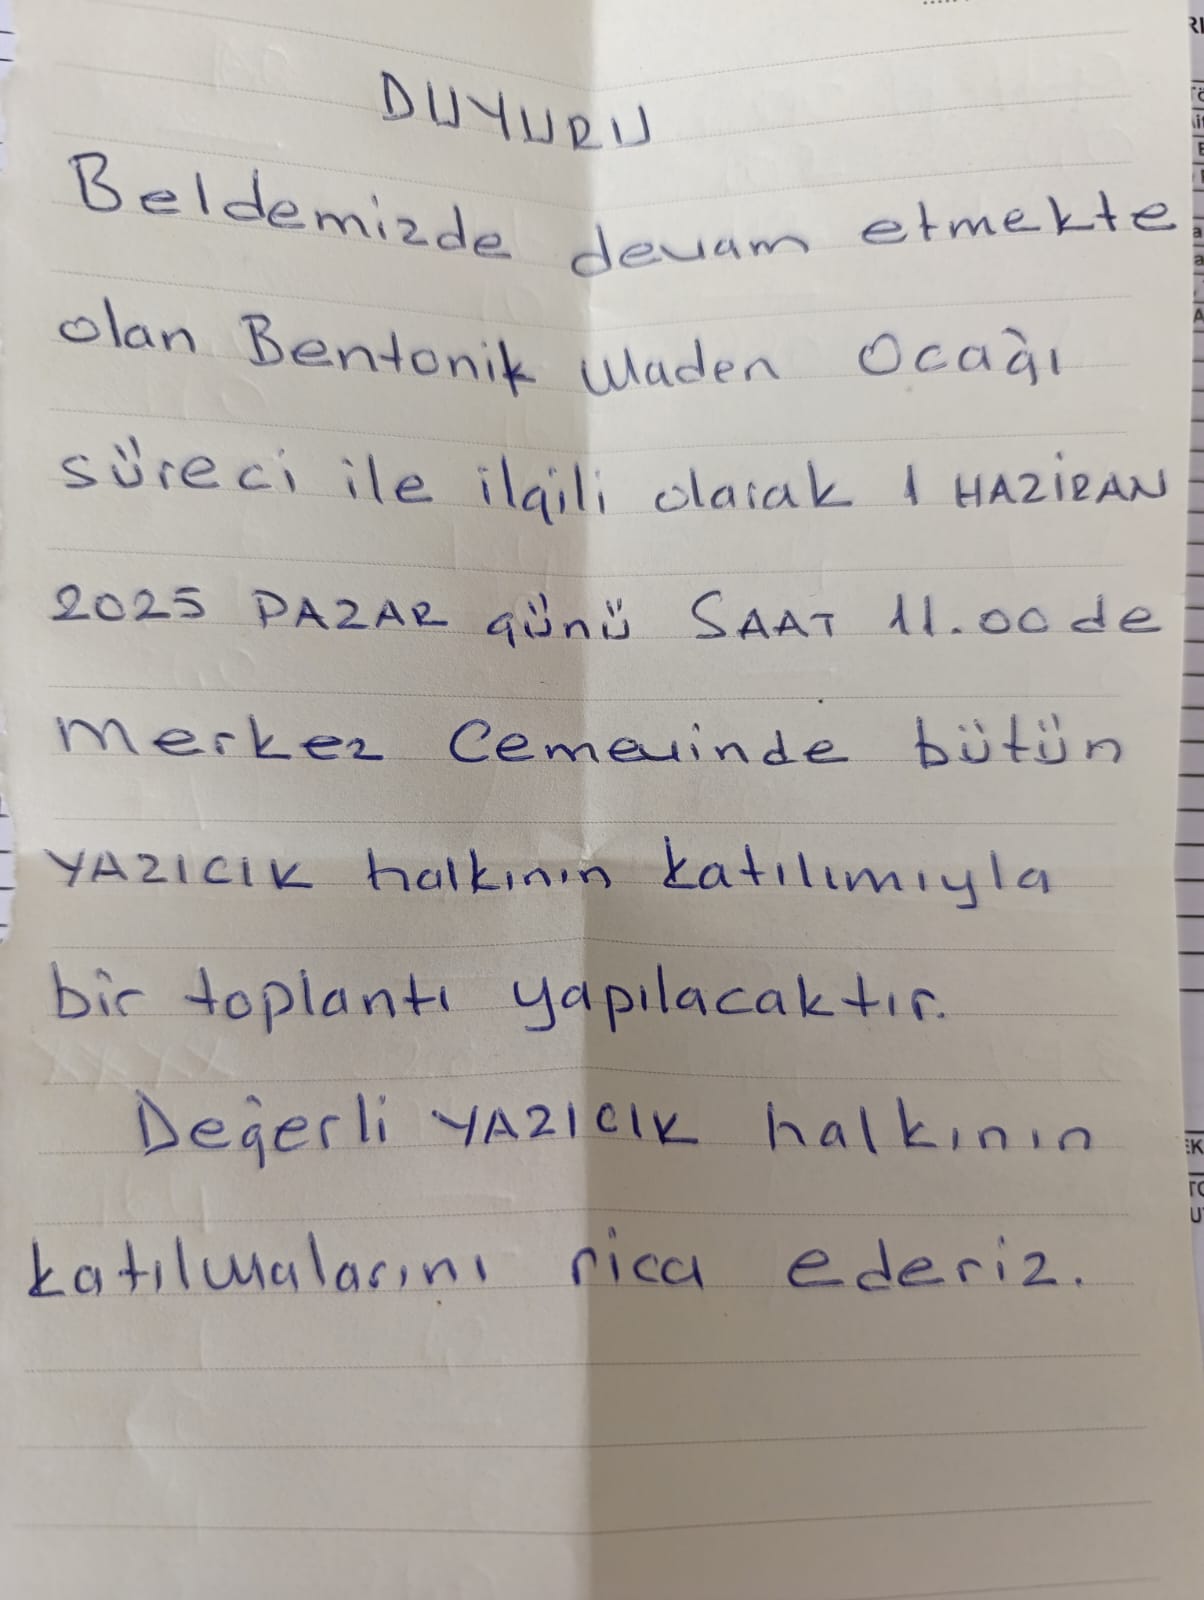 DUYURU
Beldemizde devam etmekte
olan Bentonik Maden Ocağı
süreci ile ilgili olarak 1 HAZİRAN
2025 PAZAR günü SAAT 11.00 de
Merkez Cemevinde bütün
YAZICIK halkının katılımıyla
bir toplantı yapılacaktır.
Değerli YAZICIK halkının
katılmalarını rica ederiz.